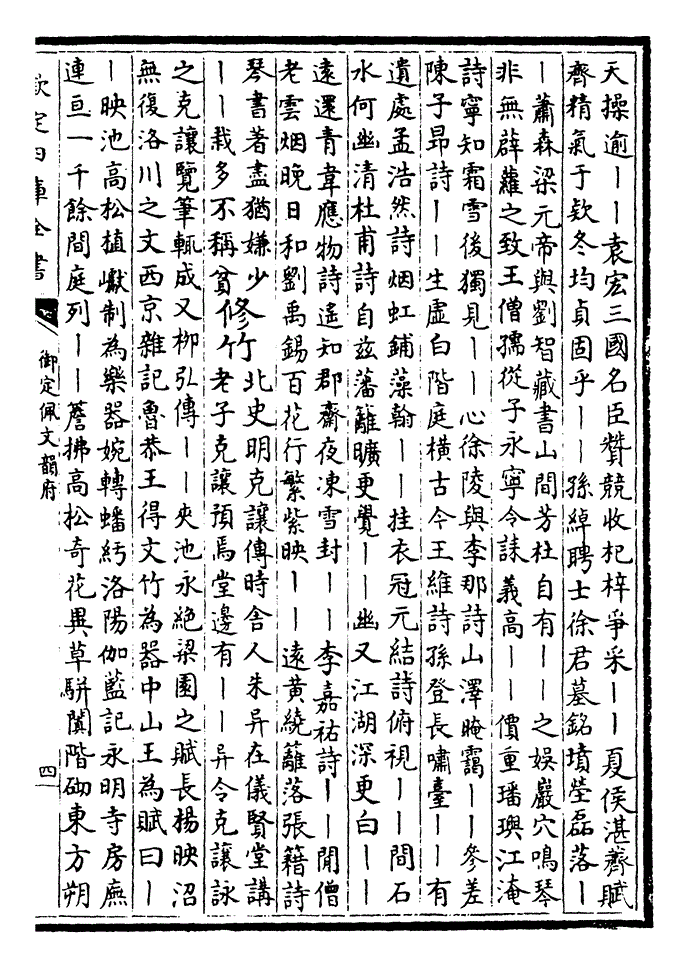 天操逾――袁宏三國名臣贊競收杞梓爭采――夏侯湛薺賦
薺精氣于欵冬均貞固乎――孫綽聘士徐君墓銘墳塋磊落―
―蕭森梁元帝與劉智藏書山間芳杜自有――之娛巖穴鳴琴
非無薜蘿之致王僧孺從子永寧令誄義高――價重璠璵江淹
詩寧知霜雪後獨見――心徐陵與李那詩山澤晻靄――參差
陳子昂詩――生虛白階庭橫古今王維詩孫登長嘯臺――有
遺處孟浩然詩烟虹鋪藻翰――挂衣冠元結詩俯視――間石
水何幽清杜甫詩自兹藩籬曠更覺――幽又江湖深更白――
遠還青韋應物詩遙知郡齋夜凍雪封――李嘉祐詩――聞僧
老雲烟晚日和劉禹錫百花行繁紫映――遠黄繞籬落張籍詩
琴書著盡猶嫌少
――栽多不稱貧修竹北史明克讓傳時舍人朱异在儀賢堂講
老子克讓預焉堂邊有――异令克讓詠
之克讓覽筆輒成又柳弘傳――夾池永絶梁園之賦長楊映沼
無復洛川之文西京雜記魯恭王得文竹為器中山王為賦曰―
―映池高松植巘制為樂器婉轉蟠紆洛陽伽藍記永明寺房廡
連亘一千餘間庭列――簷拂高松奇花異草駢闐階砌東方朔
欽定四庫全書
御定佩文韻府
四